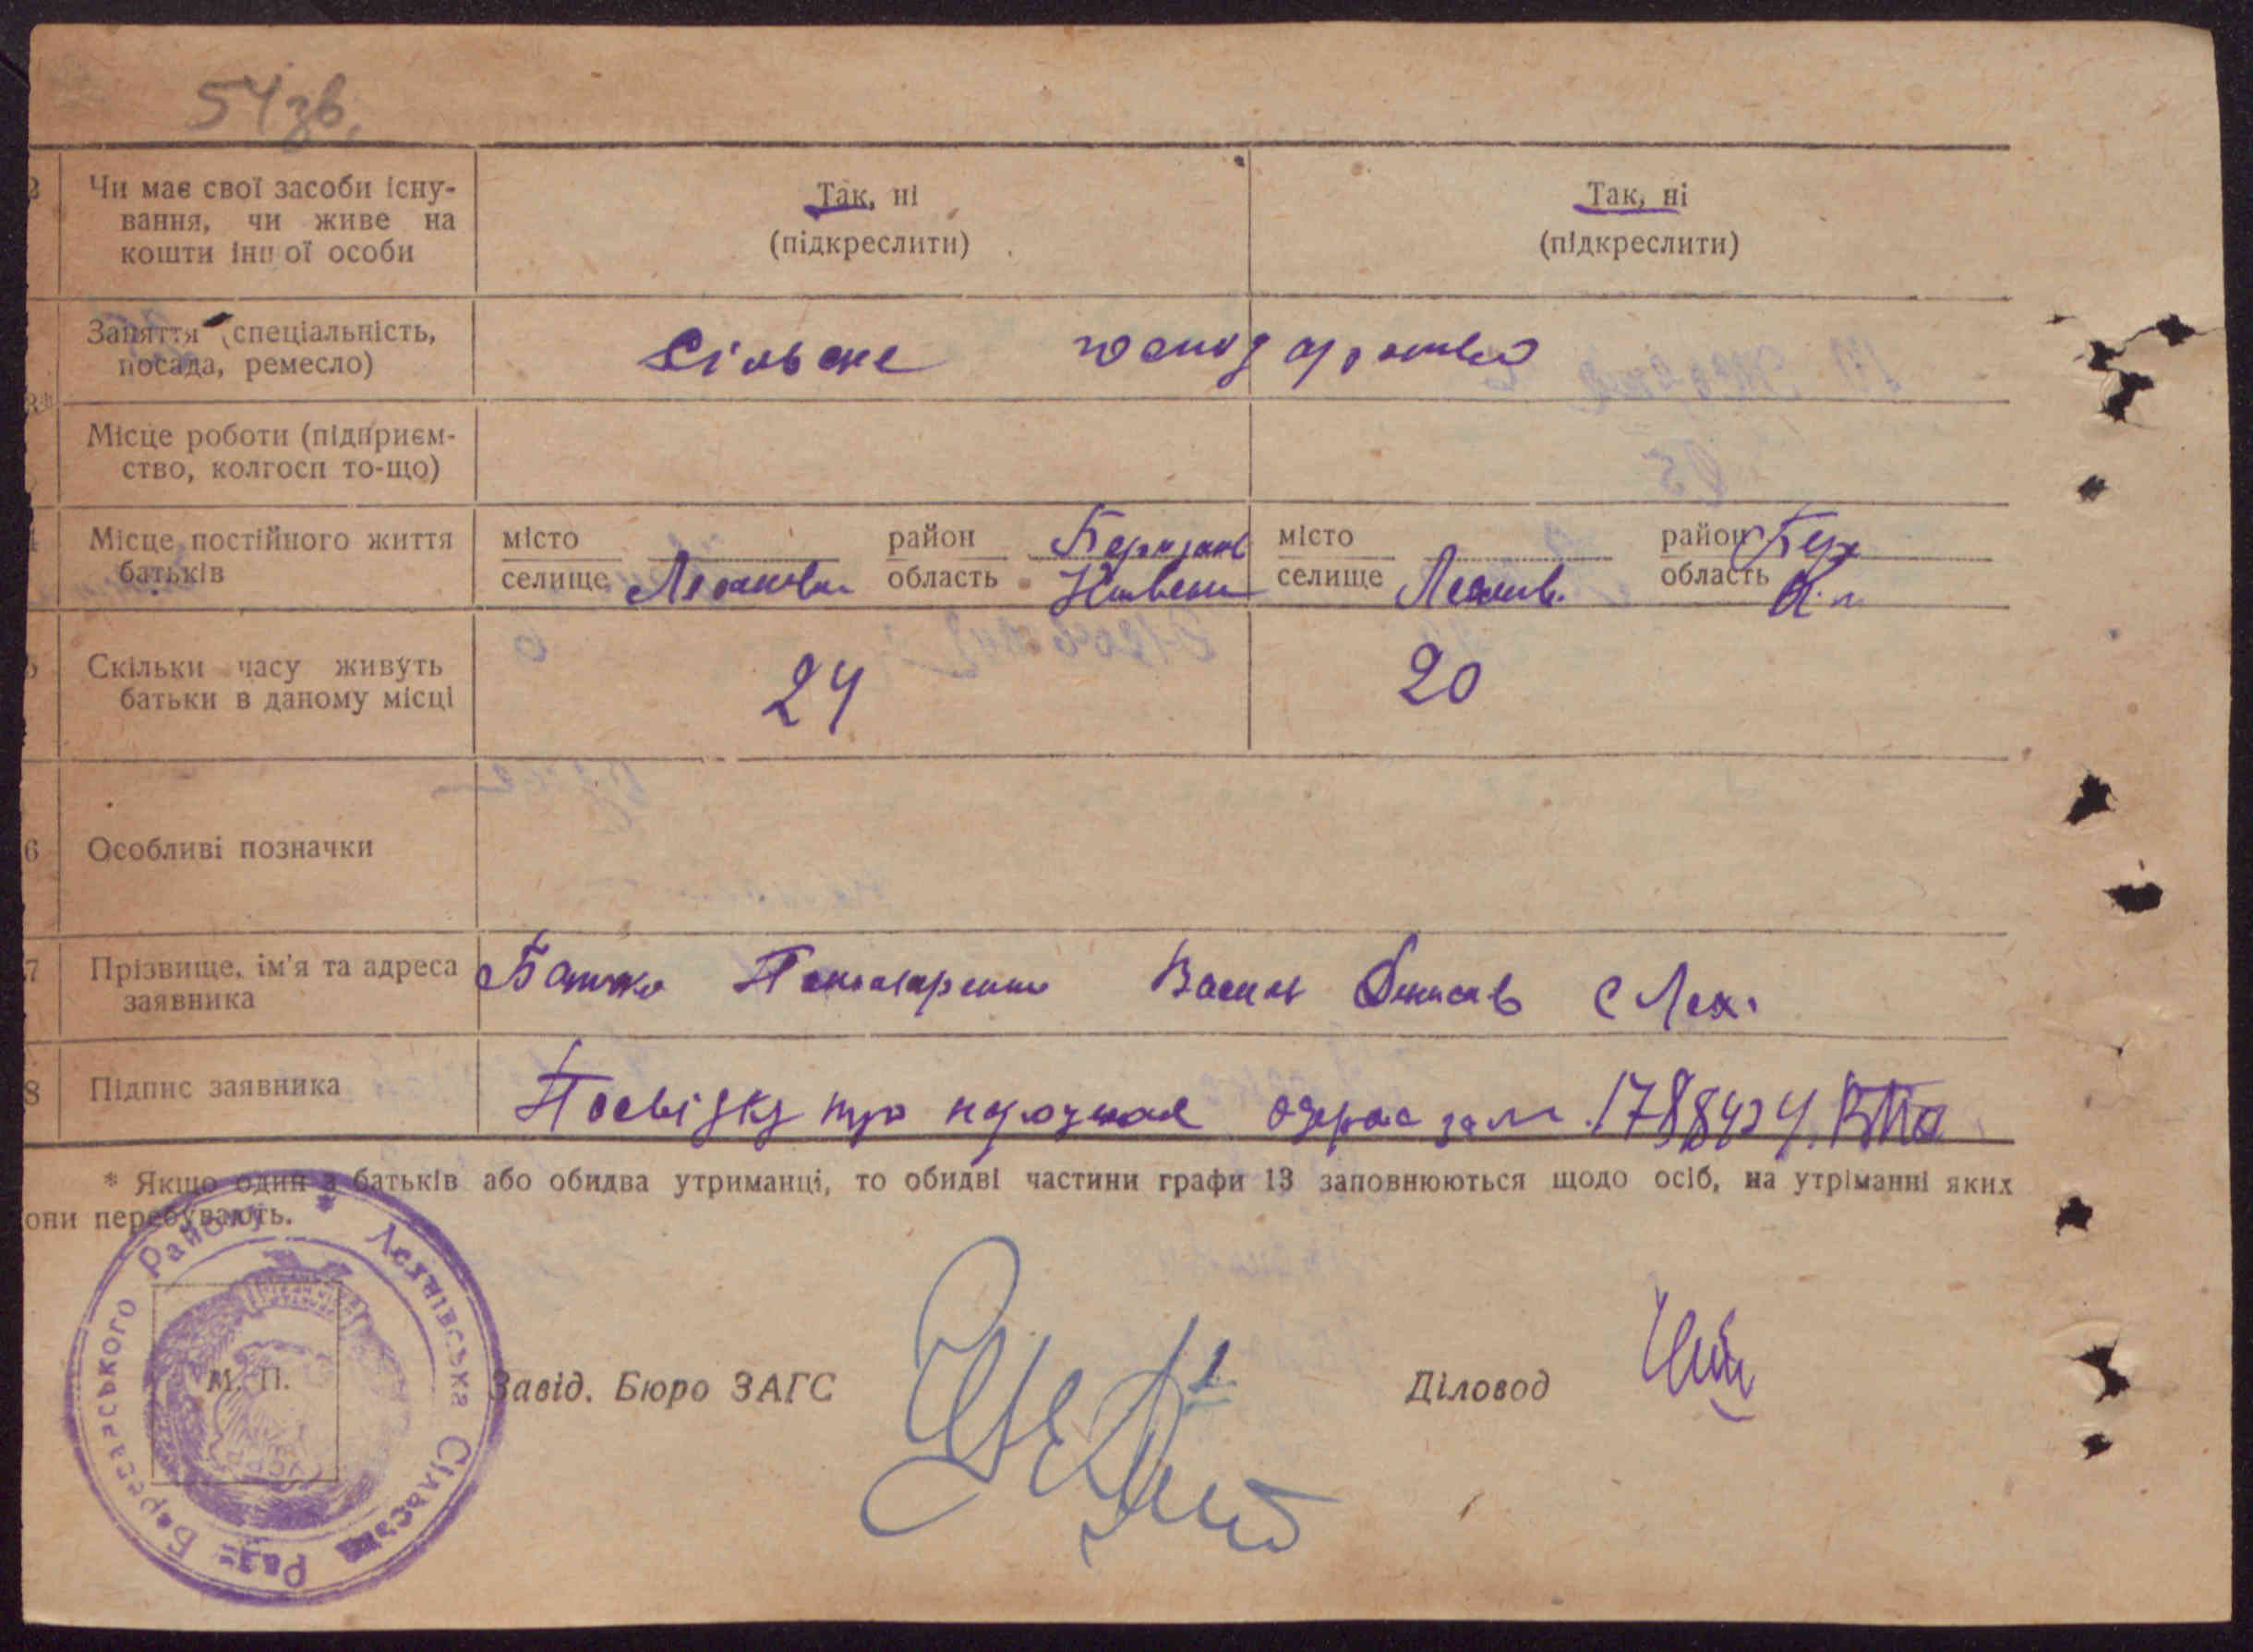 54зв.
2 Чи має свої засоби існу-
вання, чи живе на
кошти іншої особи
Так, ні
(підкреслити)
Так, ні
(підкреслити)
Заняття (спеціальність,
посада, ремесло)
Сільске господарство
3*
Місце роботи (підприєм-
ство, колгосп то-що)
Місце постійного життя
батьків
місто
селище
район
область
місто
селище
район Бер
область
Скільки часу живуть
батьки в даному місці
24
20
6 Особливі позначки
7 Прізвище, ім'я та адреса
заявника
Батько Василь Денисов с Лех.
8 Підпис заявника
Посвідку про одержав за №
* Якщо один з батьків або обидва утриманці, то обидві частини графи 13 заповнюються щодо осіб, на утріманні яких
они перебувають.
Лехнівська Сільська Рада Березанського Району *
М. П.
Завід. Бюро ЗАГС
Діловод